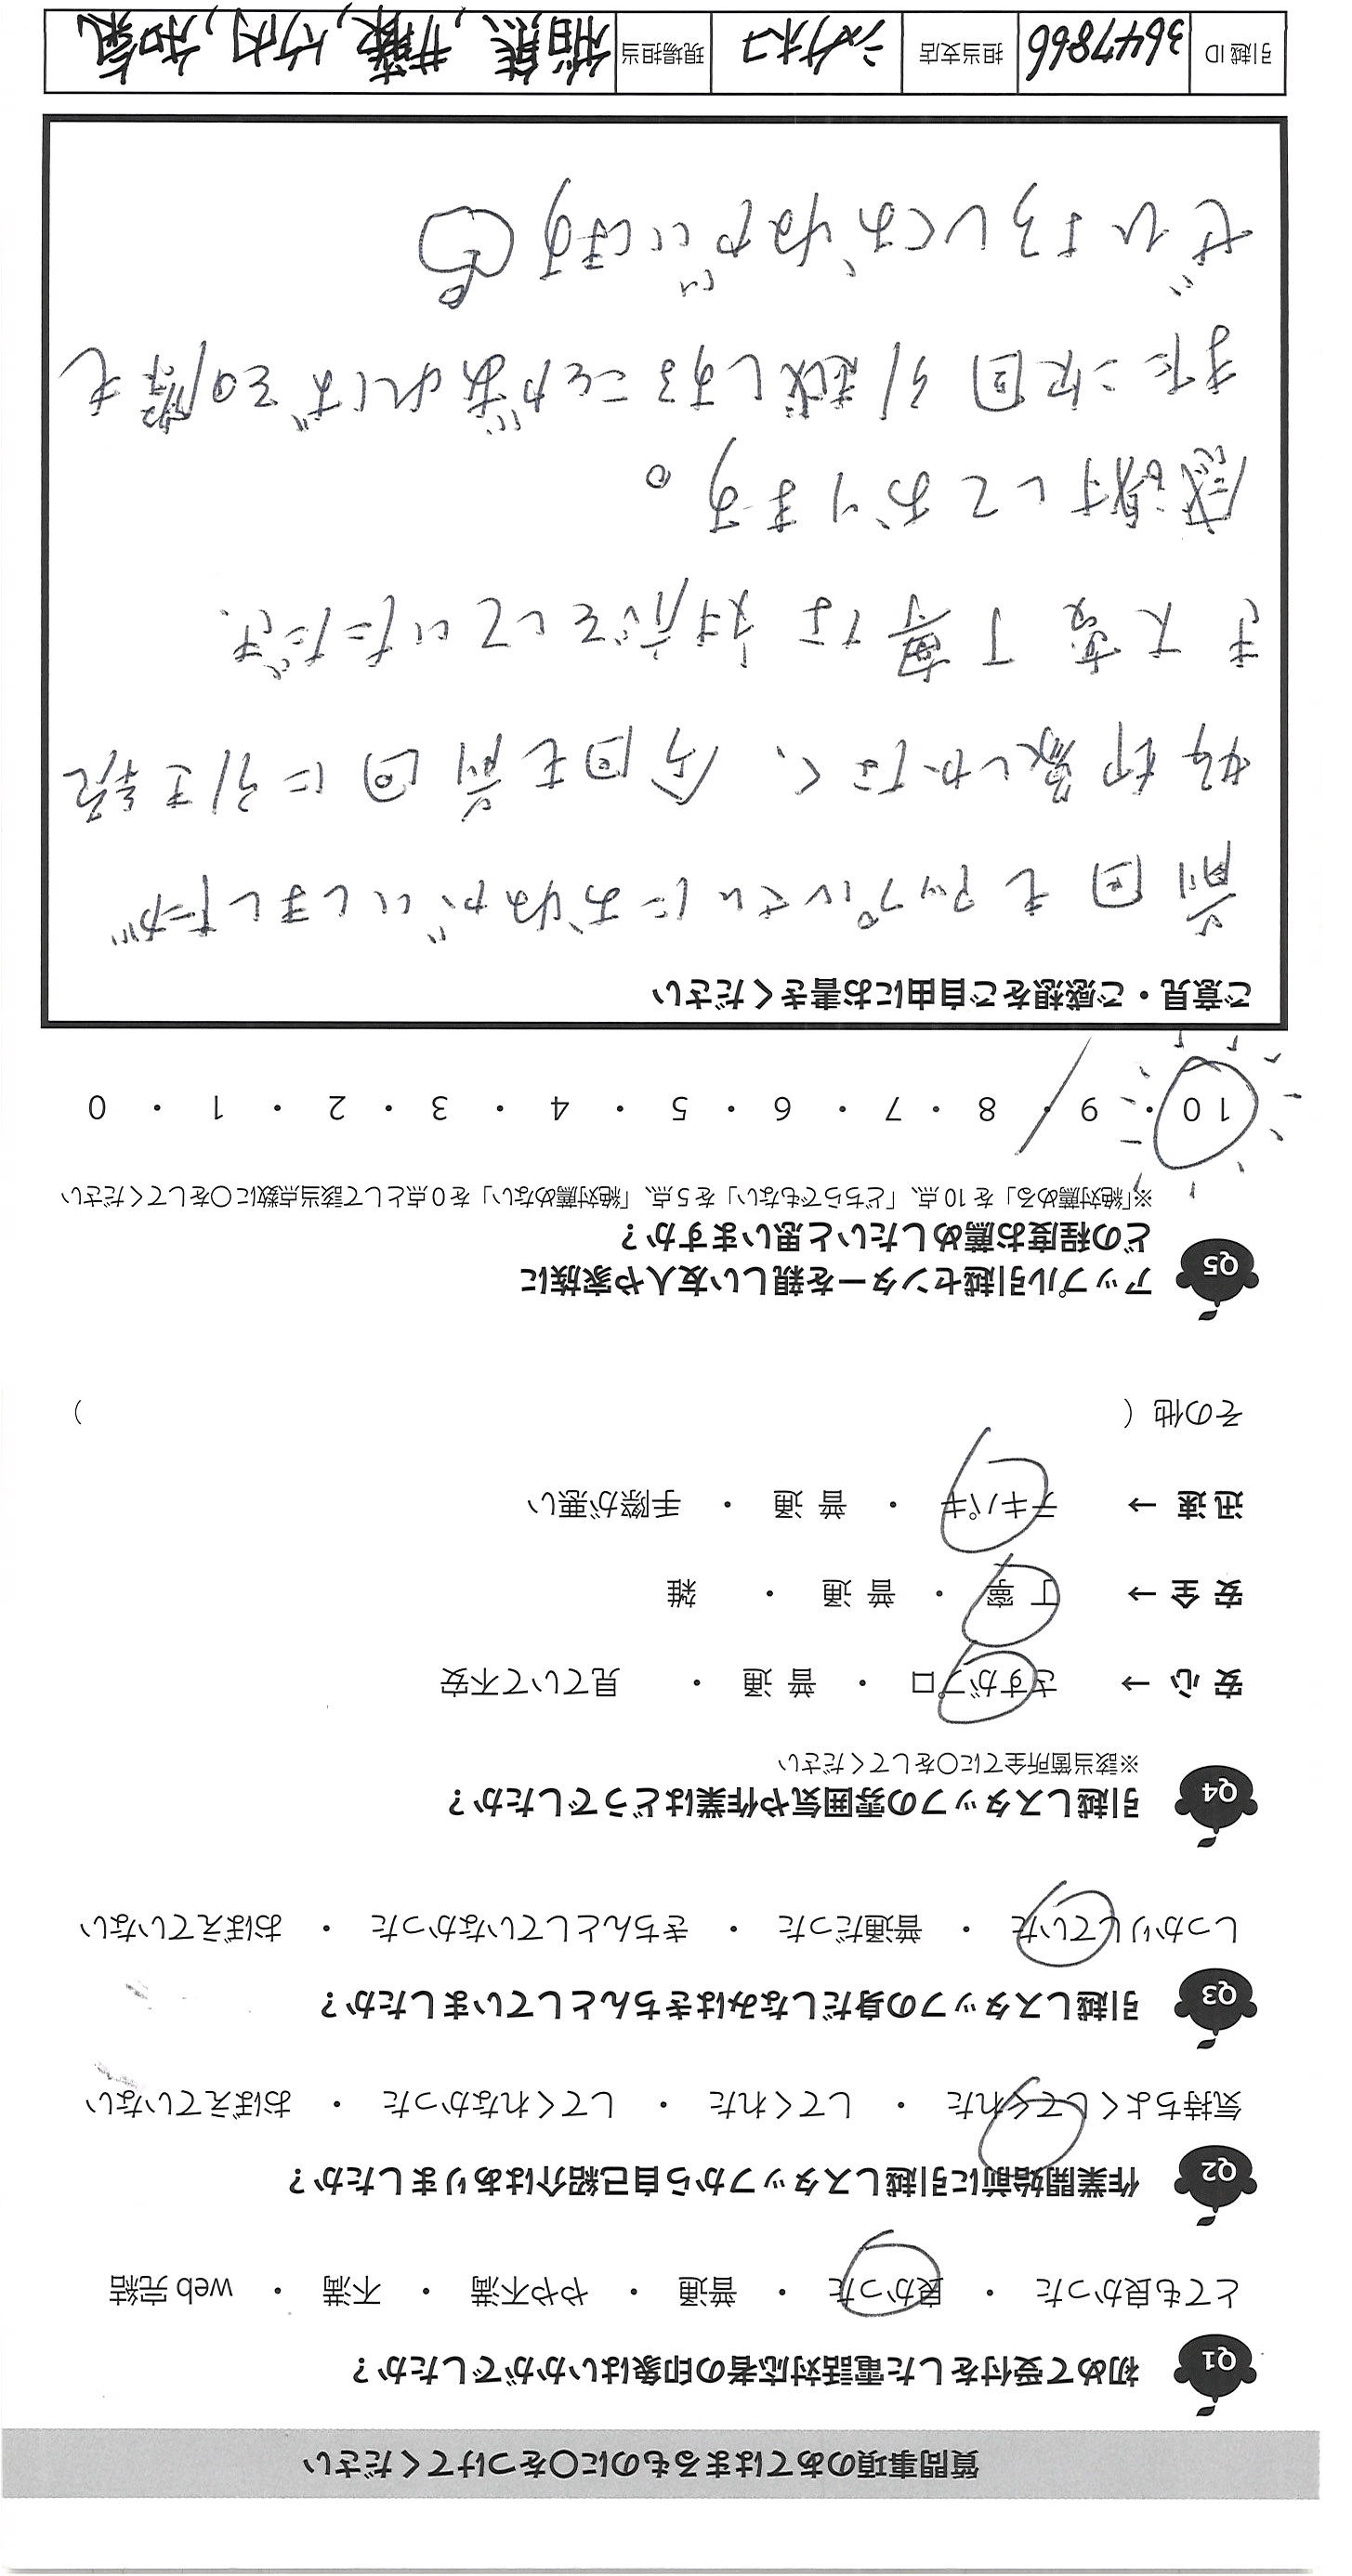 質問事項のあてはまるものに○をつけてください
Q1 初めて受付をした電話対応者の印象はいかがでしたか？
とても良かった ・ 良かった ・ 普通 ・ やや不満 ・ 不満 ・ web 完結
Q2 作業開始前に引越しスタッフから自己紹介はありましたか？
気持ちよくしてくれた ・ してくれた ・ してくれなかった ・ おぼえていない
Q3 引越しスタッフの身だしなみはきちんとしていましたか？
しっかりしていた ・ 普通だった ・ きちんとしていなかった ・ おぼえていない
Q4 引越しスタッフの雰囲気や作業はどうでしたか？
※該当箇所全てに○をしてください
安 心 → さすがプロ ・ 普 通 ・ 見ていて不安
安 全 → 丁 寧 ・ 普 通 ・ 雑
迅 速 → テキパキ ・ 普 通 ・ 手際が悪い
その他（ ）
Q5 アップル引越センターを親しい友人や家族に
どの程度お薦めしたいと思いますか？
※「絶対薦める」を 10 点、「どちらでもない」を 5 点、「絶対薦めない」を 0 点として該当点数に○をしてください
10 ・ 9 ・ 8 ・ 7 ・ 6 ・ 5 ・ 4 ・ 3 ・ 2 ・ 1 ・ 0
ご意見・ご感想をご自由にお書きください
前回もアップルさんにおねがいしましたが
好印象しかなく、今回も前回に引き続
き大変丁寧な対応をしていただき、
感謝しております。
また次回引越しすることがあればその際も
ぜひよろしくおねがいします
引越 ID 3647866 担当支店 現場担当 竹内,